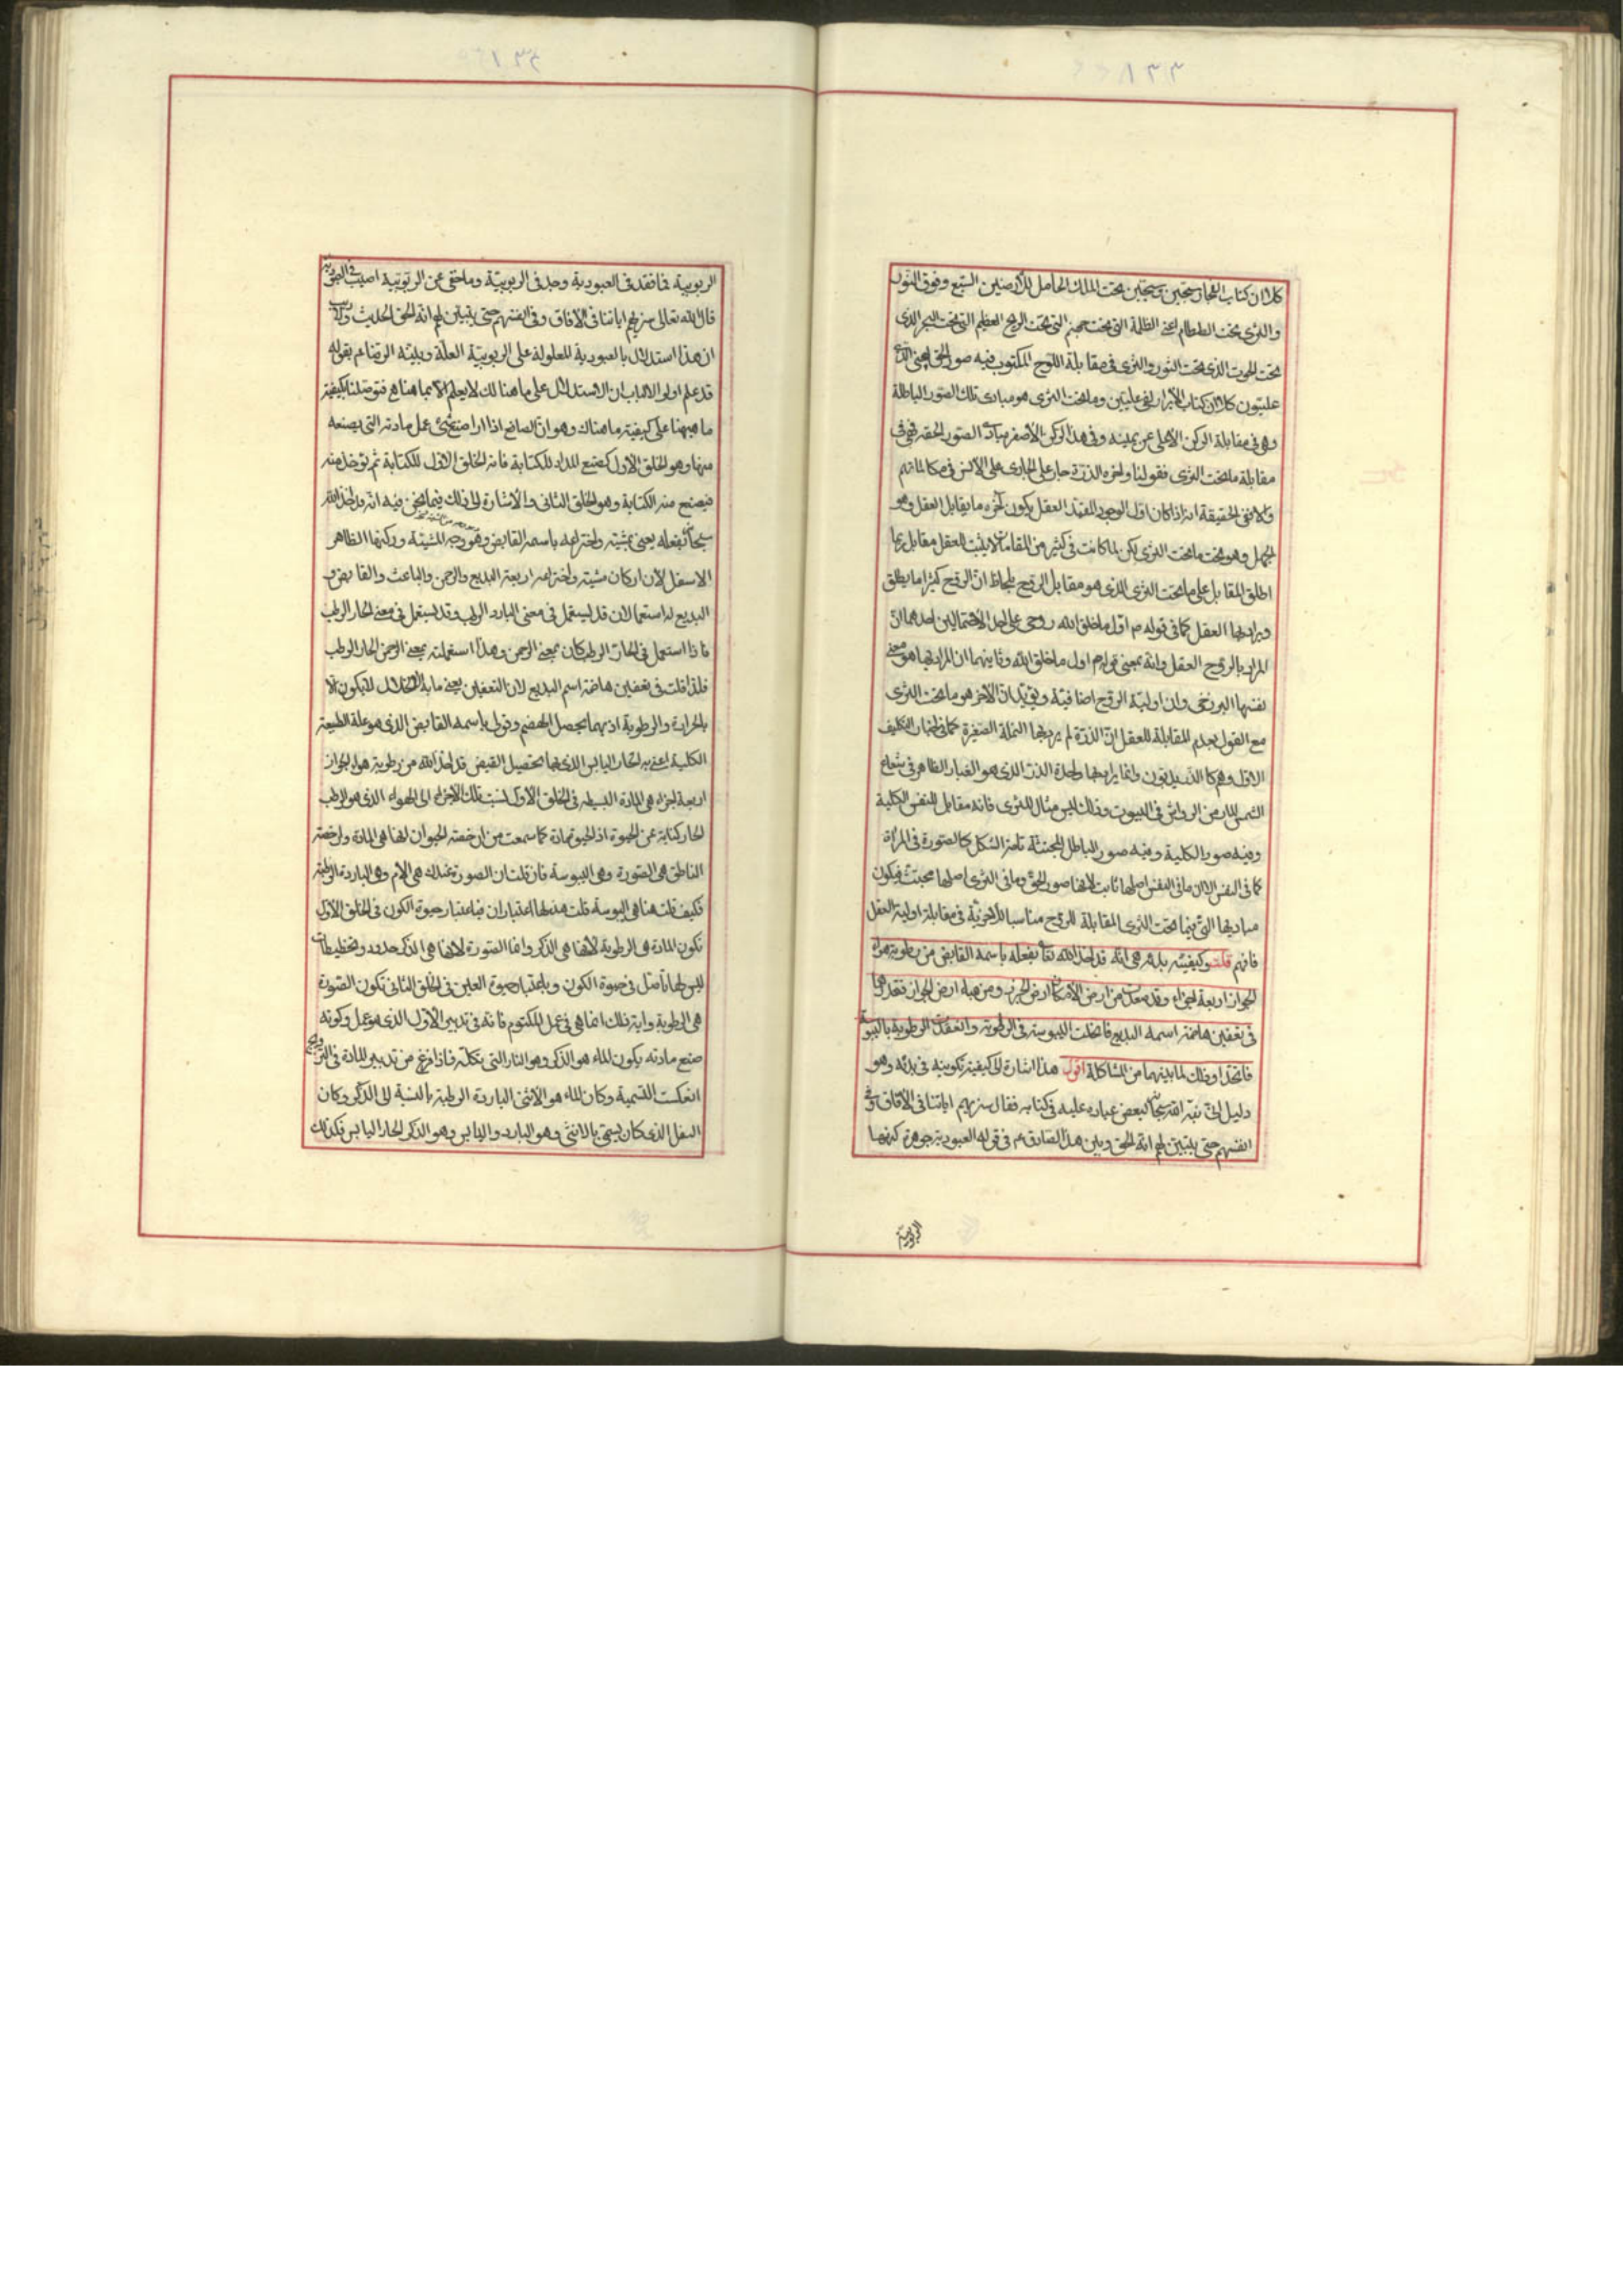 كلا ان كتاب الفجار لفى سجين وسجين تحت الملك الحامل للارضين السبع وفوق الثور
والثرى تحت الطمطام اعنى الظلمة التى تحت جهنم التى تحت الريح العظيم التى تحت البحر الذى
تحت الحوت الذى تحت الثور والثرى فى مقابلة اللوح المكتوب فيه صور الحق اعنى
عليتون كلا ان كتاب الابرار لفى عليين وما تحت الثرى هو مبادى تلك الصور الباطلة
وهى فى مقابلة الركن الاعلى عن يمينه وفى هذا الركن الاصفر مبادى الصور الحقة فهى فى
مقابلة ما تحت الثرى فقولنا واخره الذرة جار على الجارى على الالسن فى مكالماتهم
والا ففى الحقيقة انه اذا كان اول الوجود المقيد العقل يكون آخره ما يقابل العقل وهو
الجهل وهو تحت ما تحت الثرى لكن لما كانت فى كثير من المقامات لا يثبت للعقل مقابل ربما
اطلق المقابل على ما تحت الثرى الذى هو مقابل الروح بلحاظ ان الروح كثيرا ما يطلق
ويراد بها العقل كما فى قوله ص اول ما خلق الله روحى على احد الاحتمالين احدهما ان
المراد بالروح العقل وانه بمعنى قوله ص اول ما خلق الله وثانيهما ان المراد بها هو معنى
نفسها البرزخى وان اولية الروح اضافية ويؤيد ان الآخر هو ما تحت الثرى
مع القول بعدم المقابلة للعقل ان الذرة لم يرد بها النملة الصغيرة كما فى التكليف
الاول وهم كالذر يدبون وانما يراد بها واحدة الذر الذى هو الغبار الظاهر فى شعاع
الشمس المار من الرواشن فى البيوت وذلك ليس مثال للثرى فانه مقابل للنفس الكلية
وفيه صور الكلية وفيه صور الباطل المجتثة تامة الشكل كالصورة فى المرآة
كما فى النفس الا ان ما فى النفس اصلها ثابت لانها صور الحق وما فى الثرى اصلها مجتث فيكون
مباديها التى فيما تحت الثرى المقابلة للروح مناسبا للآخرية فى مقابلة اولية العقل
فافهم قلت وكيفية بدئه هى انه قد اخذ الله تعا بفعله باسمه القابض من رطوبة هواء
الجواز اربعة اجزاء وقد من ارض الامكان ارض الجرز ومن هباء ارض الجواز فقدرهما
فى تعفين هاضمة اسمه البديع فانحلت اليبوسة فى الرطوبة وانعقدت الرطوبة باليبوسة
فاتحدا وذلك لما بينهما من المشاكلة اقول هذا اشارة الى كيفية تكوينه فى بدئه وهو
دليل انى نبه الله سبحانه لبعض عباده عليه فى كتابه فقال سنريهم اياتنا فى الآفاق وفى
انفسهم حتى يتبين لهم انه الحق وبين هذا الصادق ع فى قوله العبودية جوهرة كنهها
الربوبية
الربوبية فما فقد فى العبودية وجد فى الربوبية وما خفى عن الربوبية اصيب فى العبودية
قال الله تعالى سنريهم اياتنا فى الافاق وفى انفسهم حتى يتبين لهم انه الحق الحديث
ان هذا استدلال بالعبودية المعلولة على الربوبية العلة وبينه الرضا ع بقوله
قد علم اولوا الالباب ان الاستدلال على ما هنالك لا يعلم الا بما هاهنا فتوصلنا بكيفية
ما هيهنا على كيفية ما هناك وهو ان الصانع اذا اراد صنع شئ عمل مادته التى يصنعه
منها وهو الخلق الاول كصنع المداد للكتابة فانه الخلق الاول للكتابة ثم يؤخذ منه
فيصنع منه الكتابة وهو الخلق الثانى والاشارة الى ذلك فيما نحن فيه انه قد اخذ الله
سبحانه بفعله يعنى بمشيته واختراعه باسمه القابض وهو وجه المشيئة وركنها الظاهر
الاسفل لان اركان مشيته واختراعه اربعة البديع والرحمن والباعث والقابض و
البديع له استعمالان قد يستعمل فى معنى البارد الرطب وقد يستعمل فى معنى الحار الرطب
فاذا استعمل فى الحار الرطب كان بمعنى الرحمن وهذا استعملته بمعنى الرحمن الحار الرطب
فلذا قلت فى تعفين هاضمة اسم البديع لان التعفين يعنى ما به الانحلال لا يكون الا
بالحرارة والرطوبة اذ بهما يحصل الهضم وقولى باسمه القابض الذى هو علة الطبيعة
الكلية اعنى به الحار اليابس الذى بهما تحصيل القبض قد اخذ الله من رطوبة هواء الجواز
اربعة اجزاء هى المادة البسيطة فى الخلق الاول نسبت تلك الاجزاء الى الهواء الذى هو الرطب
الحار كناية عن الحيوة اذ الحيوة مادة كما سمعت من ان حصة الحيوان لها هى المادة وان حصة
الناطق هى الصورة وهى اليبوسة فان قلت ان الصورة عندك هى الام وهى الباردة الرطبة
فكيف قلت هنا هى اليبوسة قلت هذه لها اعتباران فباعتبار حيوة الكون فى الخلق الاول
تكون المادة هى الرطوبة لانها هى الذكر واما الصورة لانها هى الذكر حدود وتخطيطات
ليس لها تاصل فى حيوة الكون وباعتبار حيوة العين فى الخلق الثانى تكون الصورة
هى الرطوبة واية ذلك انما هى فى عمل المكتوم فانه فى تدبير الاول الذى هو عمل وكونه
صنع مادته يكون الماء هو الذكر وهو النار التى تكلّه فاذا فرغ من تدبير المادة
انعكست التسمية وكان الماء هو الانثى الباردة الرطبة بالنسبة الى الذكر وكان
الثفل الذى كان يسمى بالانثى وهو البارد واليابس وهو الذكر الحار اليابس فكذلك